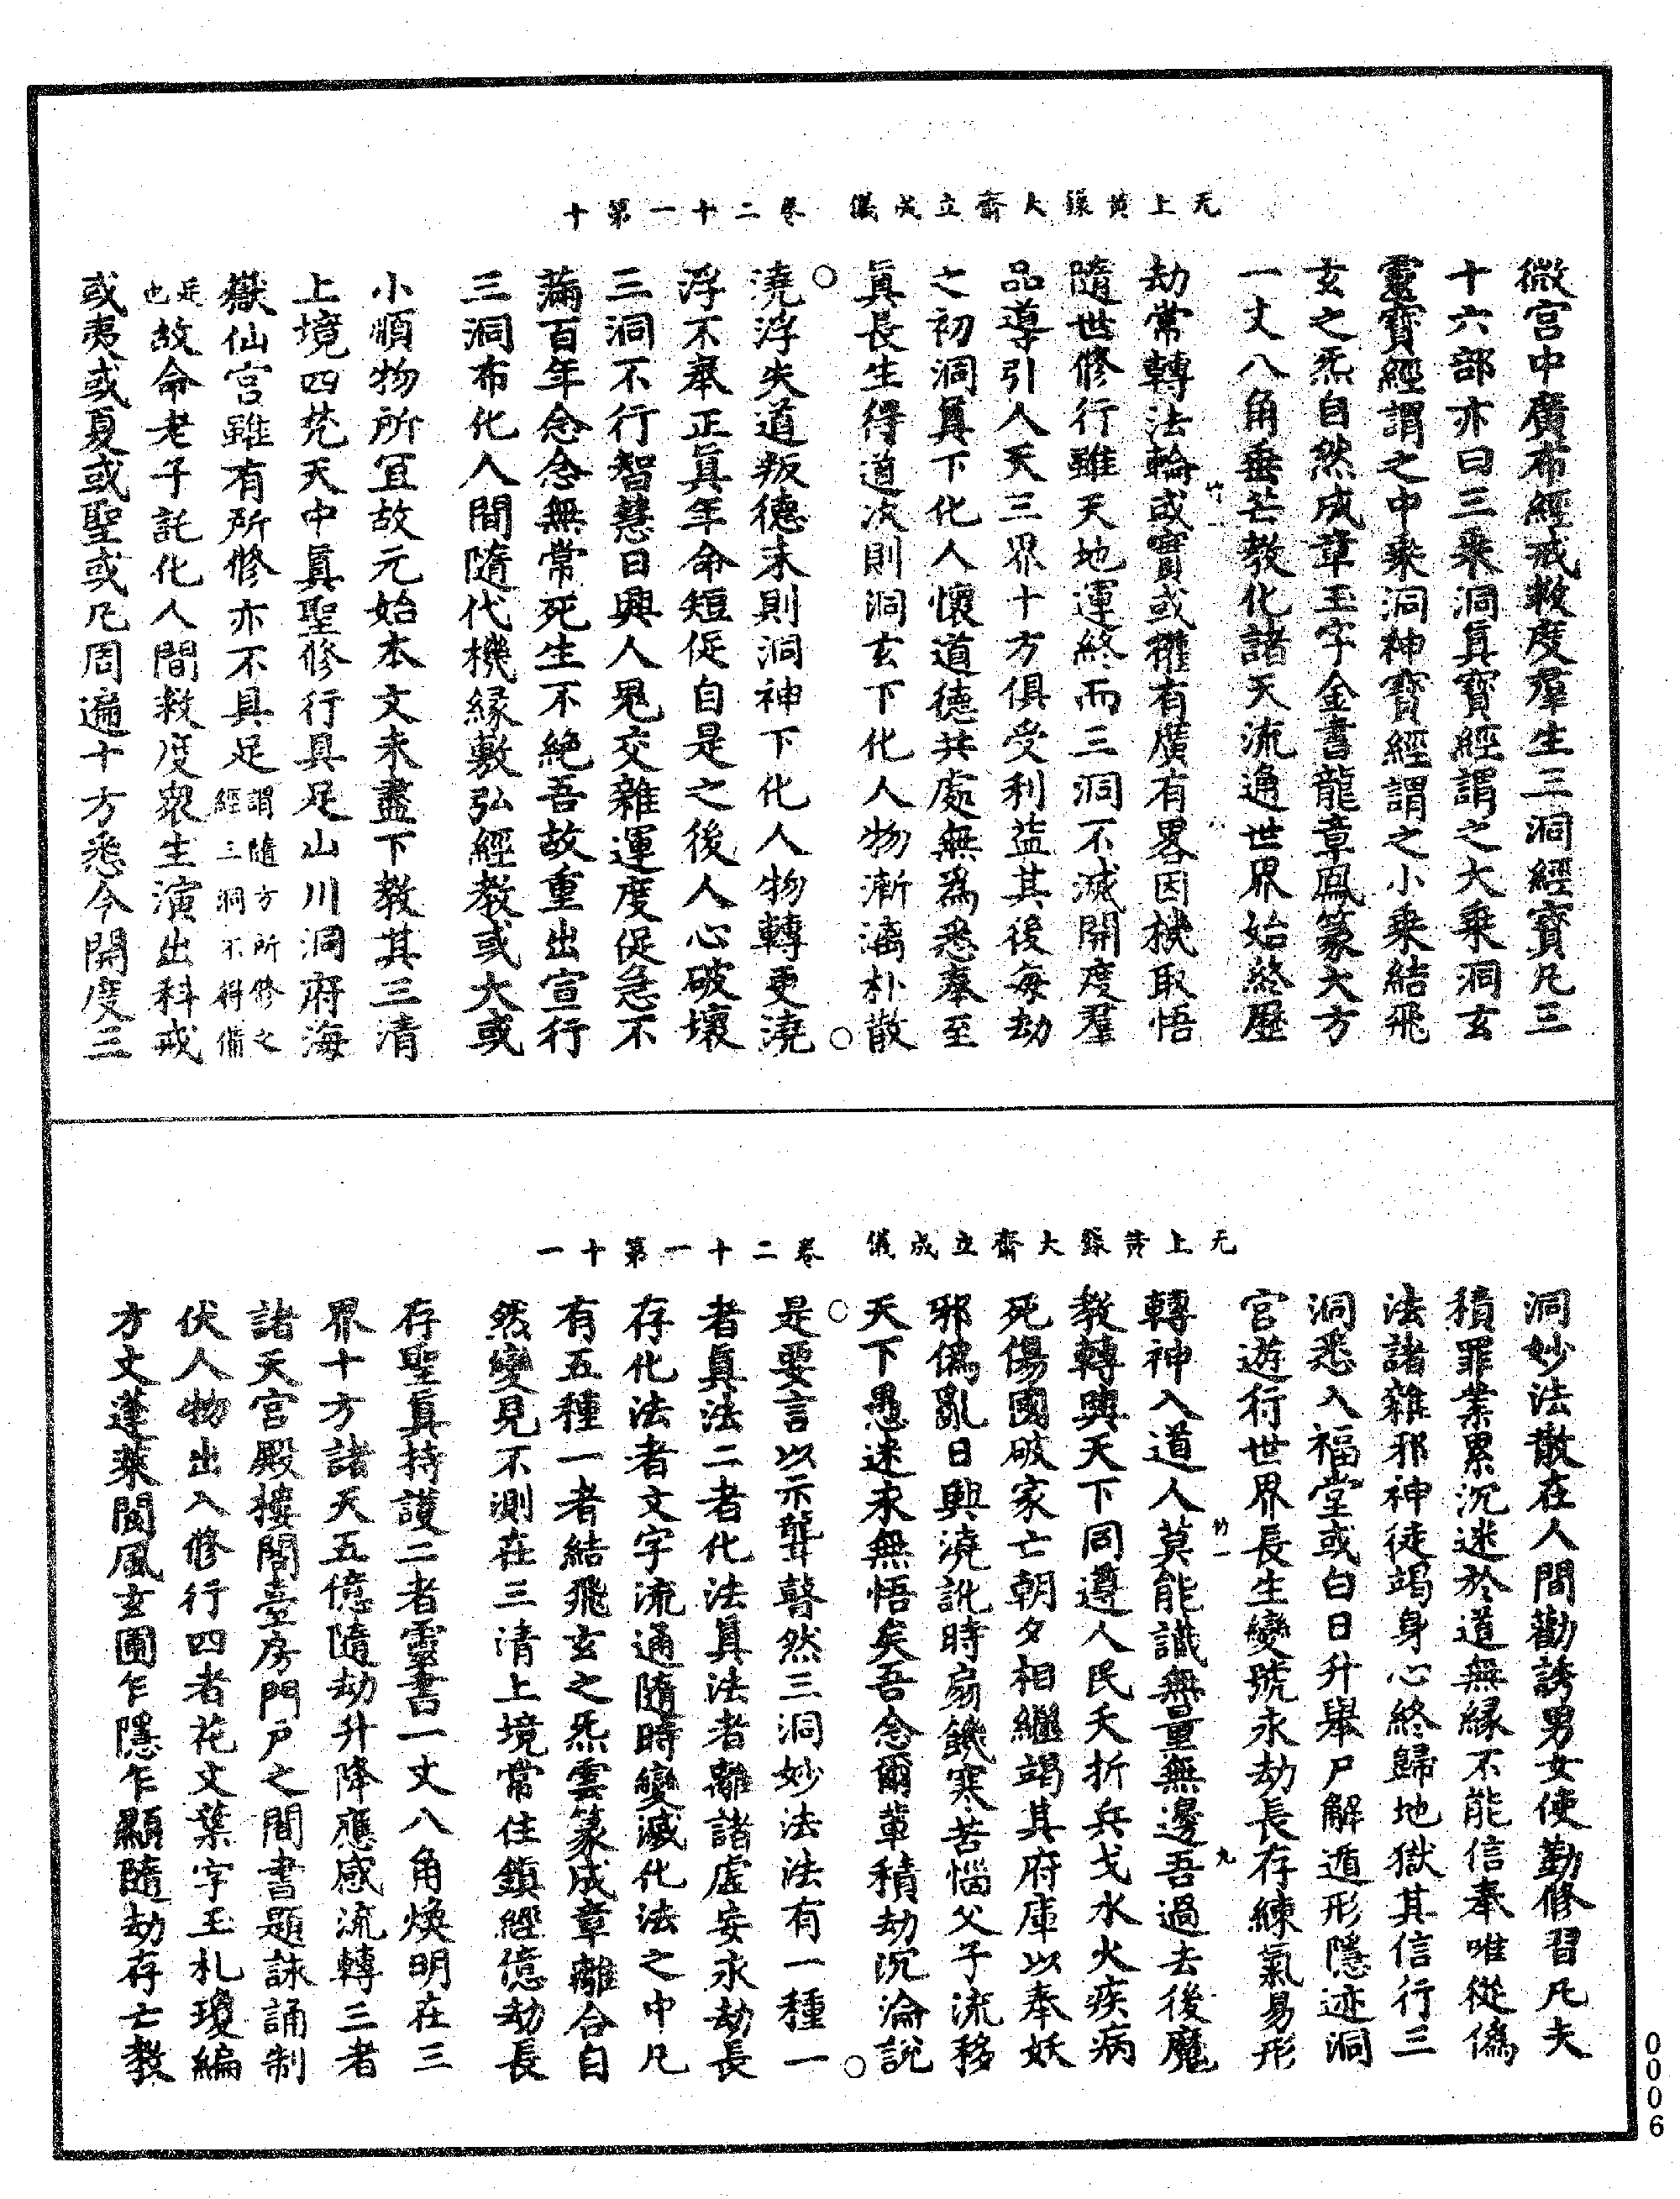 无上黃籙大齋立成儀　卷二十一第十
微宮中廣布經戒救度羣生三洞經寳凡三
十六部亦曰三乘洞真寳經謂之大乘洞玄
靈寳經謂之中乘洞神寳經謂之小乘結飛
玄之炁自然成章玉字金書龍章鳳篆大方
一丈八角垂芒教化諸天流通世界始終歷
劫常轉法輪或實或權有廣有畧因機取悟
隨世修行雖天地運終而三洞不滅開度羣
品導引人天三界十方俱受利益其後每劫
之初洞真下化人懷道德共處無為悉奉至
真長生得道次則洞玄下化人物漸漓朴散
澆浮失道叛德末則洞神下化人物轉更澆
浮不奉正真年命短促自是之後人心破壞
三洞不行智慧日興人鬼交雜運度促急不
滿百年念念無常死生不絕吾故重出宣行
三洞布化人間隨代機緣敷弘經教或大或
小順物所宜故元始本文未盡下教其三清
上境四梵天中真聖修行具足山川洞府海
嶽仙宮雖有所修亦不具足謂隨方所修之經三洞不得備
是也故命老子託化人間救度衆生演出科戒
或夷或夏或聖或凡周遍十方悉令開度三
竹一
无上黃籙大齋立成儀　卷二十一第十一
洞妙法散在人間勸誘男女使勤修習凡夫
積罪業累沉迷於道無緣不能信奉唯從偽
法諸雜邪神徒竭身心終歸地獄其信行三
洞悉入福堂或白日升舉尸解遁形隱迹洞
宮遊行世界長生變號永劫長存練氣易形
轉神入道人莫能識無量無邊吾過去後魔
教轉興天下同遵人民夭折兵戈水火疾病
死傷國破家亡朝夕相繼竭其府庫以奉妖
邪偽亂日興澆訛時扇饑寒苦惱父子流移
天下愚迷永無悟矣吾念爾輩積劫沉淪說
是要言以示聾瞽然三洞妙法法有一種一
者真法二者化法真法者離諸虛妄永劫長
存化法者文字流通隨時變滅化法之中凡
有五種一者結飛玄之炁雲篆成章離合自
然變見不測在三清上境常住鎮經億劫長
存聖真持護二者靈書一丈八角煥明在三
界十方諸天五億隨劫升降應感流轉三者
諸天宮殿樓閣臺房門戶之間書題詠誦制
伏人物出入修行四者花文葉字玉札瓊編
方丈蓬萊閬風玄圃乍隱乍顯隨劫存亡教
竹一
九
0006